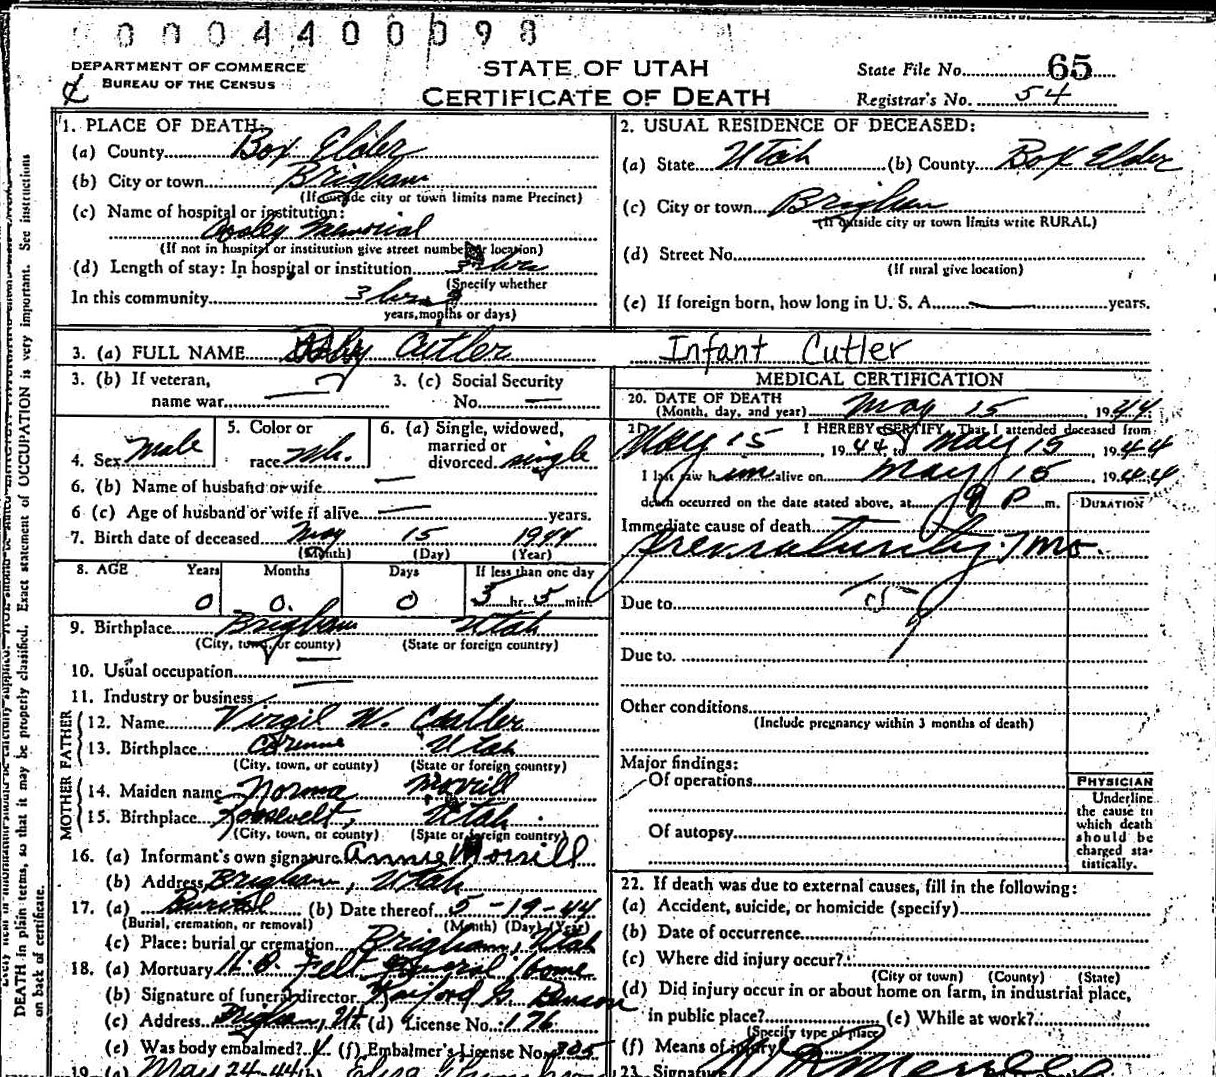 0004400098
DEPARTMENT OF COMMERCE
BUREAU OF THE CENSUS
STATE OF UTAH
CERTIFICATE OF DEATH
State File No. 65
Registrar's No. 54
1. PLACE OF DEATH:
(a) County Box Elder
(b) City or town Brigham
(If outside city or town limits name Precinct)
(c) Name of hospital or institution:
Cooley Memorial
(If not in hospital or institution give street number or location)
(d) Length of stay: In hospital or institution 3 hrs
(Specify whether
In this community 3 hrs
years, months or days)
2. USUAL RESIDENCE OF DECEASED:
(a) State Utah (b) County Box Elder
(c) City or town Brigham
(If outside city or town limits write RURAL)
(d) Street No.
(If rural give location)
(e) If foreign born, how long in U. S. A. years.
3. (a) FULL NAME Baby Cutler Infant Cutler
3. (b) If veteran,
name war
3. (c) Social Security
No.
4. Sex Male
5. Color or
race Wh.
6. (a) Single, widowed,
married or
divorced single
6. (b) Name of husband or wife
6 (c) Age of husband or wife if alive years.
7. Birth date of deceased May 15 1944
(Month) (Day) (Year)
8. AGE Years Months Days If less than one day
0 0. 0 3 hr. 5 min.
9. Birthplace Brigham Utah
(City, town, or county) (State or foreign country)
10. Usual occupation
11. Industry or business
FATHER
12. Name Virgil W. Cutler
13. Birthplace Corinne Utah
(City, town, or county) (State or foreign country)
MOTHER
14. Maiden name Norma Morrill
15. Birthplace Roosevelt, Utah
(City, town, or county) (State or foreign country)
16. (a) Informant's own signature Annie Morrill
(b) Address Brigham, Utah
17. (a) Burial (b) Date thereof 5-19-44
(Burial, cremation, or removal) (Month) (Day) (Year)
(c) Place: burial or cremation Brigham, Utah
18. (a) Mortuary H. B. Felt Funeral Home
(b) Signature of funeral director
(c) Address Brigham, Ut (d) License No. 176
(e) Was body embalmed? (f) Embalmer's License No. 305
19 (a) May 24-44
MEDICAL CERTIFICATION
20. DATE OF DEATH
(Month, day, and year) May 15, 1944
21 I HEREBY CERTIFY, That I attended deceased from
May 15, 1944 to May 15, 1944
I last saw him alive on May 15, 1944
death occurred on the date stated above, at 9 P m.
DURATION
Immediate cause of death
prematurity 7 mo.
Due to
Due to.
Other conditions
(Include pregnancy within 3 months of death)
Major findings:
Of operations
Of autopsy
PHYSICIAN
Underline
the cause to
which death
should be
charged sta-
tistically.
22. If death was due to external causes, fill in the following:
(a) Accident, suicide, or homicide (specify)
(b) Date of occurrence
(c) Where did injury occur?
(City or town) (County) (State)
(d) Did injury occur in or about home on farm, in industrial place,
in public place? (e) While at work?
(Specify type of place)
(f) Means of injury
23. Signature
DEATH in plain terms, so that it may be properly classified. Exact statement of OCCUPATION is very important. See instructions
on back of certificate.